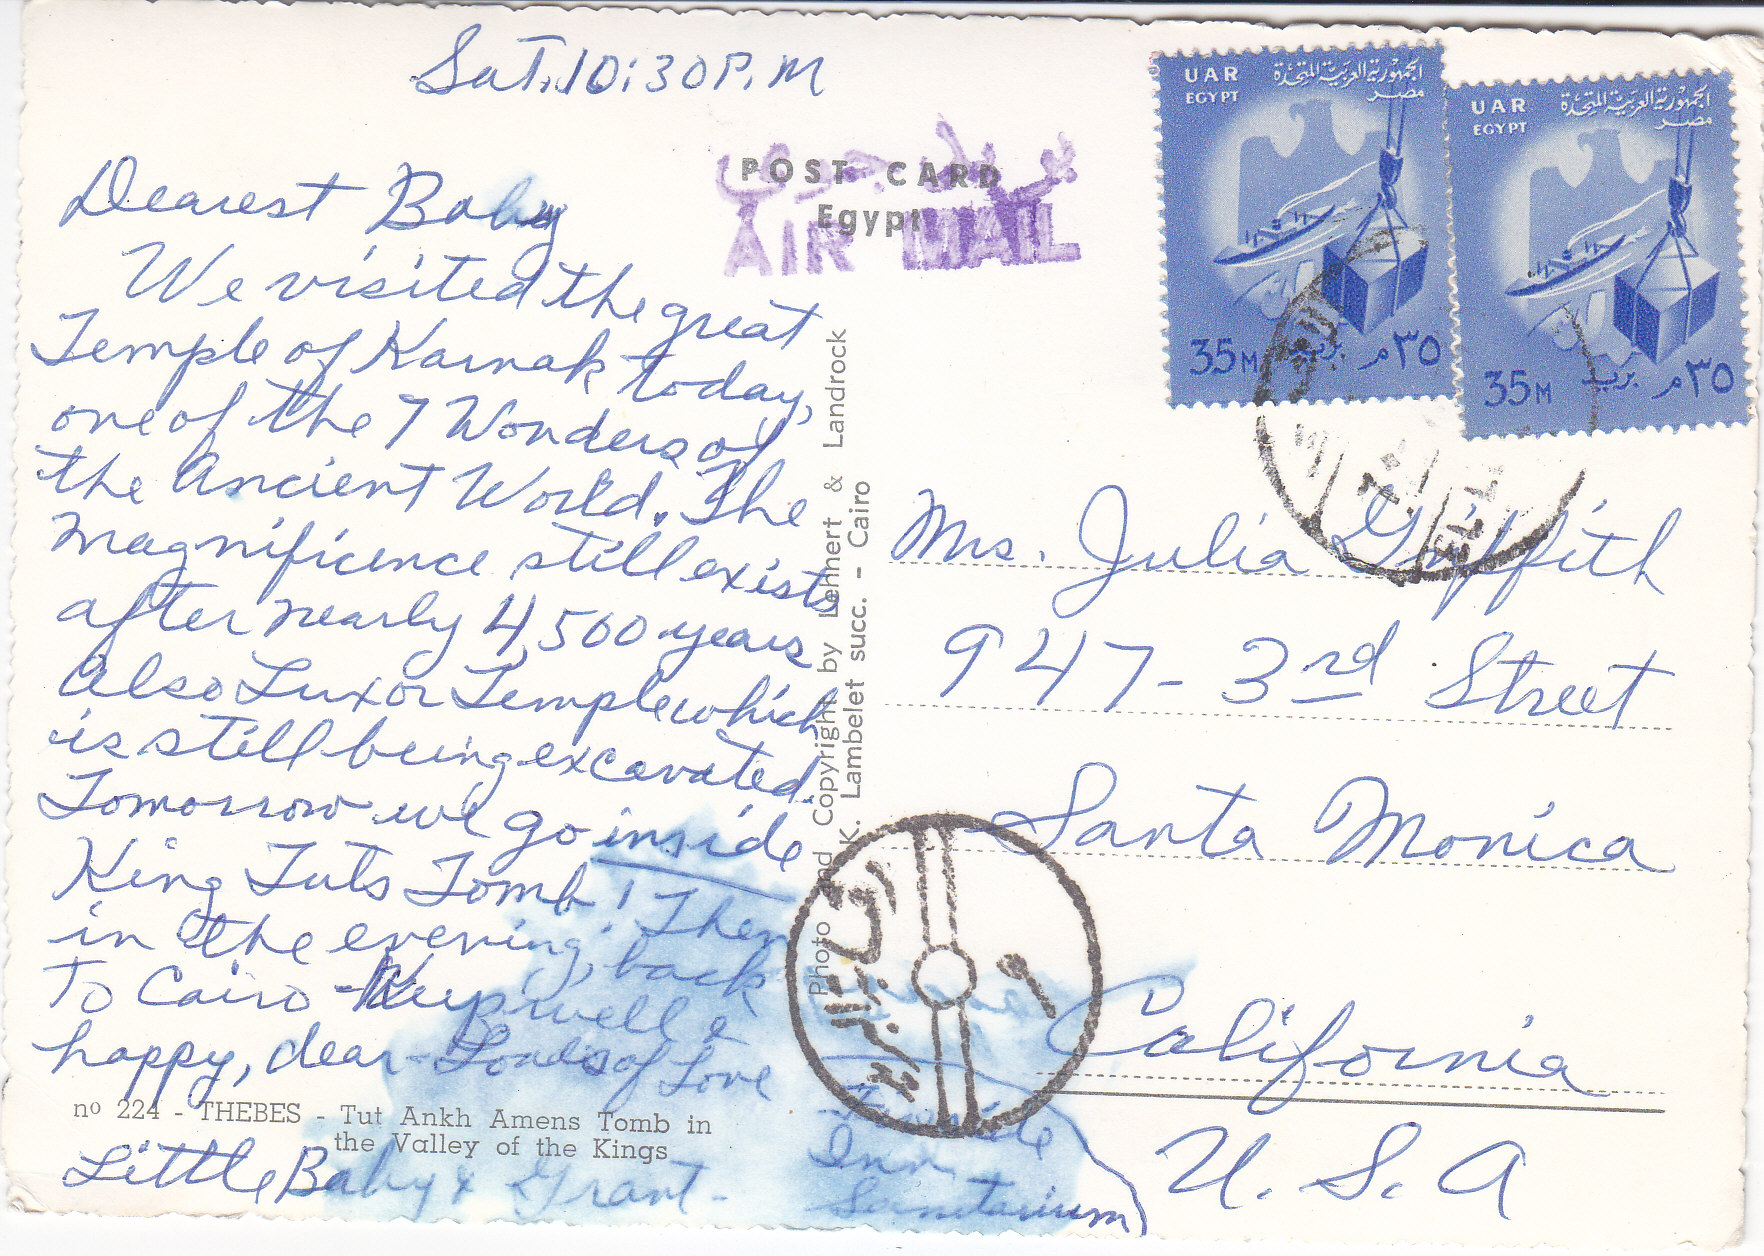 Sat. 10:30 P.M
Dearest Baby
We visited the great
Temple of Karnak today,
one of the 7 Wonders of
the Ancient World. The
magnificence still exists
after nearly 4,500 years
Also Luxor Temple which
is still being excavated.
Tomorrow we go inside
King Tuts Tomb! Then
in the evening, back
To Cairo - Keep well &
happy, dear - Loads of Love
nº 224 - THEBES - Tut Ankh Amens Tomb in
the Valley of the Kings
Little Baby & Grant -
POST CARD
Egypt
AIR MAIL
Photo and Copyright by Lehnert & Landrock
K. Lambelet succ. - Cairo
UAR
EGYPT
الجمهورية العربية المتحدة
مصر
35 M
بريد
٣٥ م
UAR
EGYPT
الجمهورية العربية المتحدة
مصر
35 M
بريد
٣٥ م
Mrs. Julia Griffith
947 - 3rd Street
Santa Monica
California
U. S. A
Inn
Sanitarium